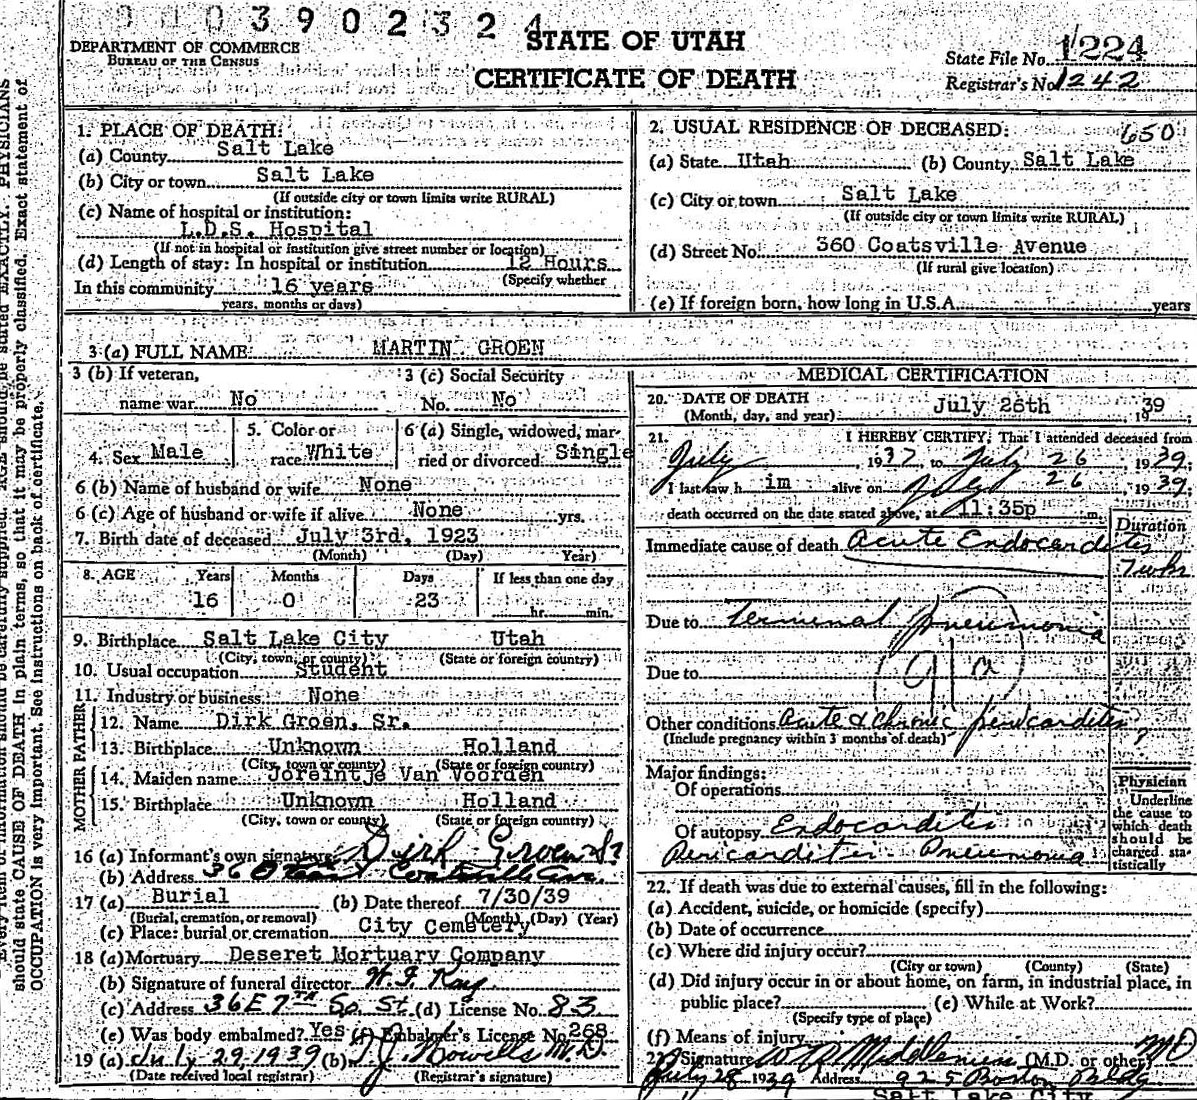 0 0 3 9 0 2 3 2 4
DEPARTMENT OF COMMERCE
BUREAU OF THE CENSUS
STATE OF UTAH
CERTIFICATE OF DEATH
State File No. 1224
Registrar's No. 1242
1. PLACE OF DEATH:
(a) County Salt Lake
(b) City or town Salt Lake
(If outside city or town limits write RURAL)
(c) Name of hospital or institution:
L.D.S. Hospital
(If not in hospital or institution give street number or location)
(d) Length of stay: In hospital or institution 12 Hours
(Specify whether
In this community 16 years
years, months or days)
2. USUAL RESIDENCE OF DECEASED: 650
(a) State Utah (b) County Salt Lake
(c) City or town Salt Lake
(If outside city or town limits write RURAL)
(d) Street No. 360 Coatsville Avenue
(If rural give location)
(e) If foreign born, how long in U.S.A. years
3 (a) FULL NAME MARTIN GROEN
3 (b) If veteran, name war No
3 (c) Social Security No. No
4. Sex Male
5. Color or race White
6 (a) Single, widowed, married or divorced Single
6 (b) Name of husband or wife None
6 (c) Age of husband or wife if alive None yrs.
7. Birth date of deceased July 3rd, 1923
(Month) (Day) Year)
8. AGE Years Months Days If less than one day
16 0 23 hr. min.
9. Birthplace Salt Lake City Utah
(City, town, or county) (State or foreign country)
10. Usual occupation Student
11. Industry or business None
FATHER
12. Name Dirk Groen, Sr.
13. Birthplace Unknown Holland
(City, town or county) (State or foreign country)
MOTHER
14. Maiden name Joreintje Van Voorden
15. Birthplace Unknown Holland
(City, town or county) (State or foreign country)
16 (a) Informant's own signature Dirk Groen Sr
(b) Address 360 Coatsville Ave.
17 (a) Burial (b) Date thereof 7/30/39
(Burial, cremation, or removal) (Month) (Day) (Year)
(c) Place: burial or cremation City Cemetery
18 (a) Mortuary Deseret Mortuary Company
(b) Signature of funeral director
(c) Address 36 E 7th So. St. (d) License No. 83
(e) Was body embalmed? Yes (f) Embalmer's License No. 268
19 (a) July 29, 1939 (b) Howells M.D.
(Date received local registrar) (Registrar's signature)
MEDICAL CERTIFICATION
20. DATE OF DEATH July 26th 1939
(Month, day, and year)
21. I HEREBY CERTIFY, That I attended deceased from
July, 1937 to July 26, 1939;
I last saw h im alive on July 26, 1939;
death occurred on the date stated above, at 11:35p m.
Duration
Immediate cause of death Acute Endocarditis
7 wks
Due to Terminal pneumonia
Due to 91a
Other conditions Acute & chronic pericarditis ?
(Include pregnancy within 3 months of death)
Major findings:
Of operations
Of autopsy Endocarditis
Pericarditis Pneumonia
Physician
Underline the cause to which death should be charged statistically
22. If death was due to external causes, fill in the following:
(a) Accident, suicide, or homicide (specify)
(b) Date of occurrence
(c) Where did injury occur?
(City or town) (County) (State)
(d) Did injury occur in or about home, on farm, in industrial place, in
public place? (e) While at Work?
(Specify type of place)
(f) Means of injury
23. Signature Middleman (M.D. or other) MD
July 28 1939 Address 925 Boston Bldg
Salt Lake City
should state CAUSE OF DEATH in plain terms, so that it may be properly classified. Exact statement of
OCCUPATION is very important. See instructions on back of certificate.